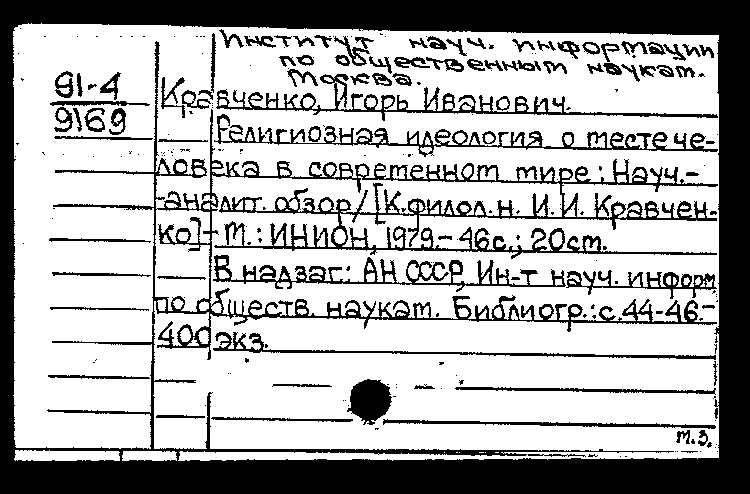 Институт науч. информации
по общественным наукам.
Москва.
91-4
9169
Кравченко, Игорь Иванович.
Религиозная идеология о месте че-
ловека в современном мире: Науч.-
-аналит. обзор/[К.филол.н. И.И. Кравчен-
ко]-М.: ИНИОН, 1979.-46с.; 20см.
В надзаг.: АН СССР, Ин-т науч. информ
по обществ. наукам. Библиогр.: с.44-46.-
400 экз.
М.З.